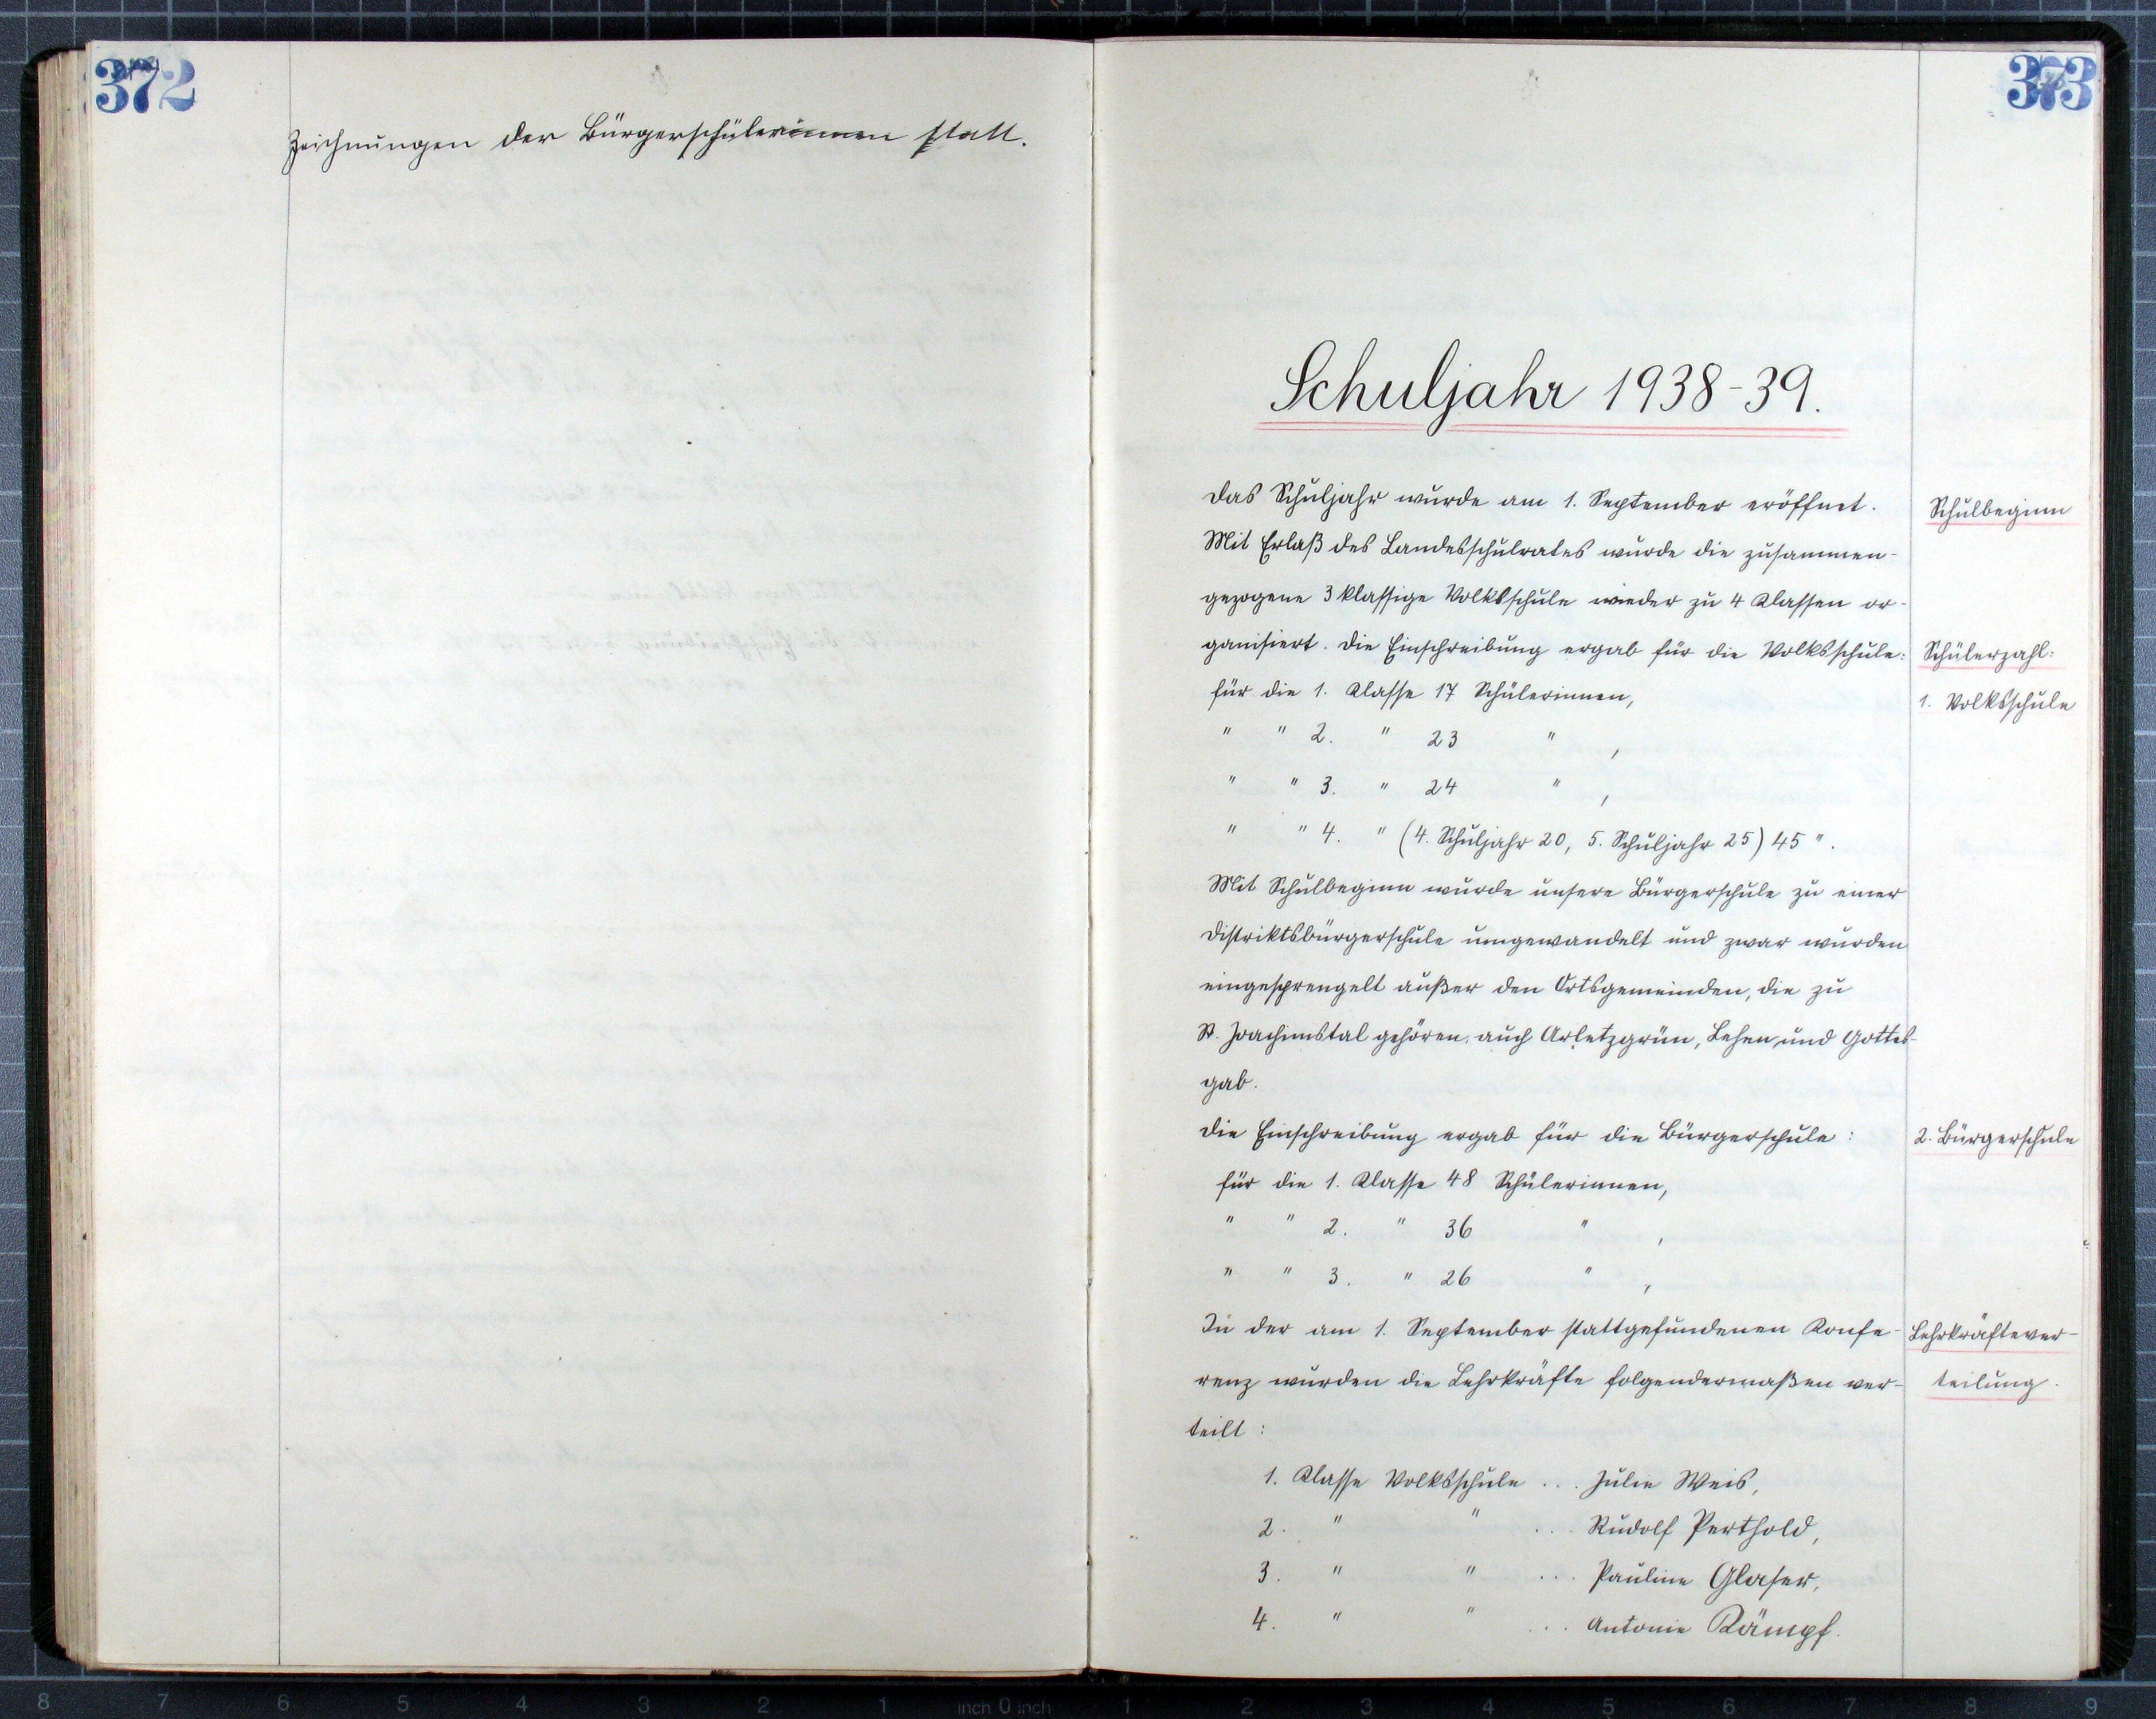 372
Zeichnungen der Bürgerschülerinnen statt.
373
Schuljahr 1938-39.
Das Schuljahr wurde am 1. September eröffnet.
Schulbeginn
Mit Erlaß des Landesschulrates wurde die zusammen-
gezogene 3 klassige Volksschule wieder zu 4 Klassen or-
ganisiert. Die Einschreibung ergab für die Volksschule:
Schülerzahl:
für die 1. Klasse 17 Schülerinnen,
1. Volksschule
" " 2. " 23 " ,
" " 3. " 24 " ,
" " 4. " (4. Schuljahr 20, 5. Schuljahr 25) 45 ".
Mit Schulbeginn wurde unsere Bürgerschule zu einer
Distriktsbürgerschule umgewandelt und zwar wurden
eingesprengelt außer den Ortsgemeinden, die zu
St. Joachimstal gehören, auch Arletzgrün, Lehen und Gottes-
gab.
Die Einschreibung ergab für die Bürgerschule:
2. Bürgerschule
für die 1. Klasse 48 Schülerinnen,
" " 2. " 36 " ,
" " 3. " 26 " ,
In der am 1. September stattgefundenen Konfe-
Lehrkräftever-
renz wurden die Lehrkräfte folgendermaßen ver-
teilung.
teilt:
1. Klasse Volksschule ... Julie Weis,
2. " " ... Rudolf Perthold,
3. " " ... Pauline Glaser,
4. " " ... Antonie Kämpf.
8 7 6 5 4 3 2 1 inch 0 inch 1 2 3 4 5 6 7 8 9